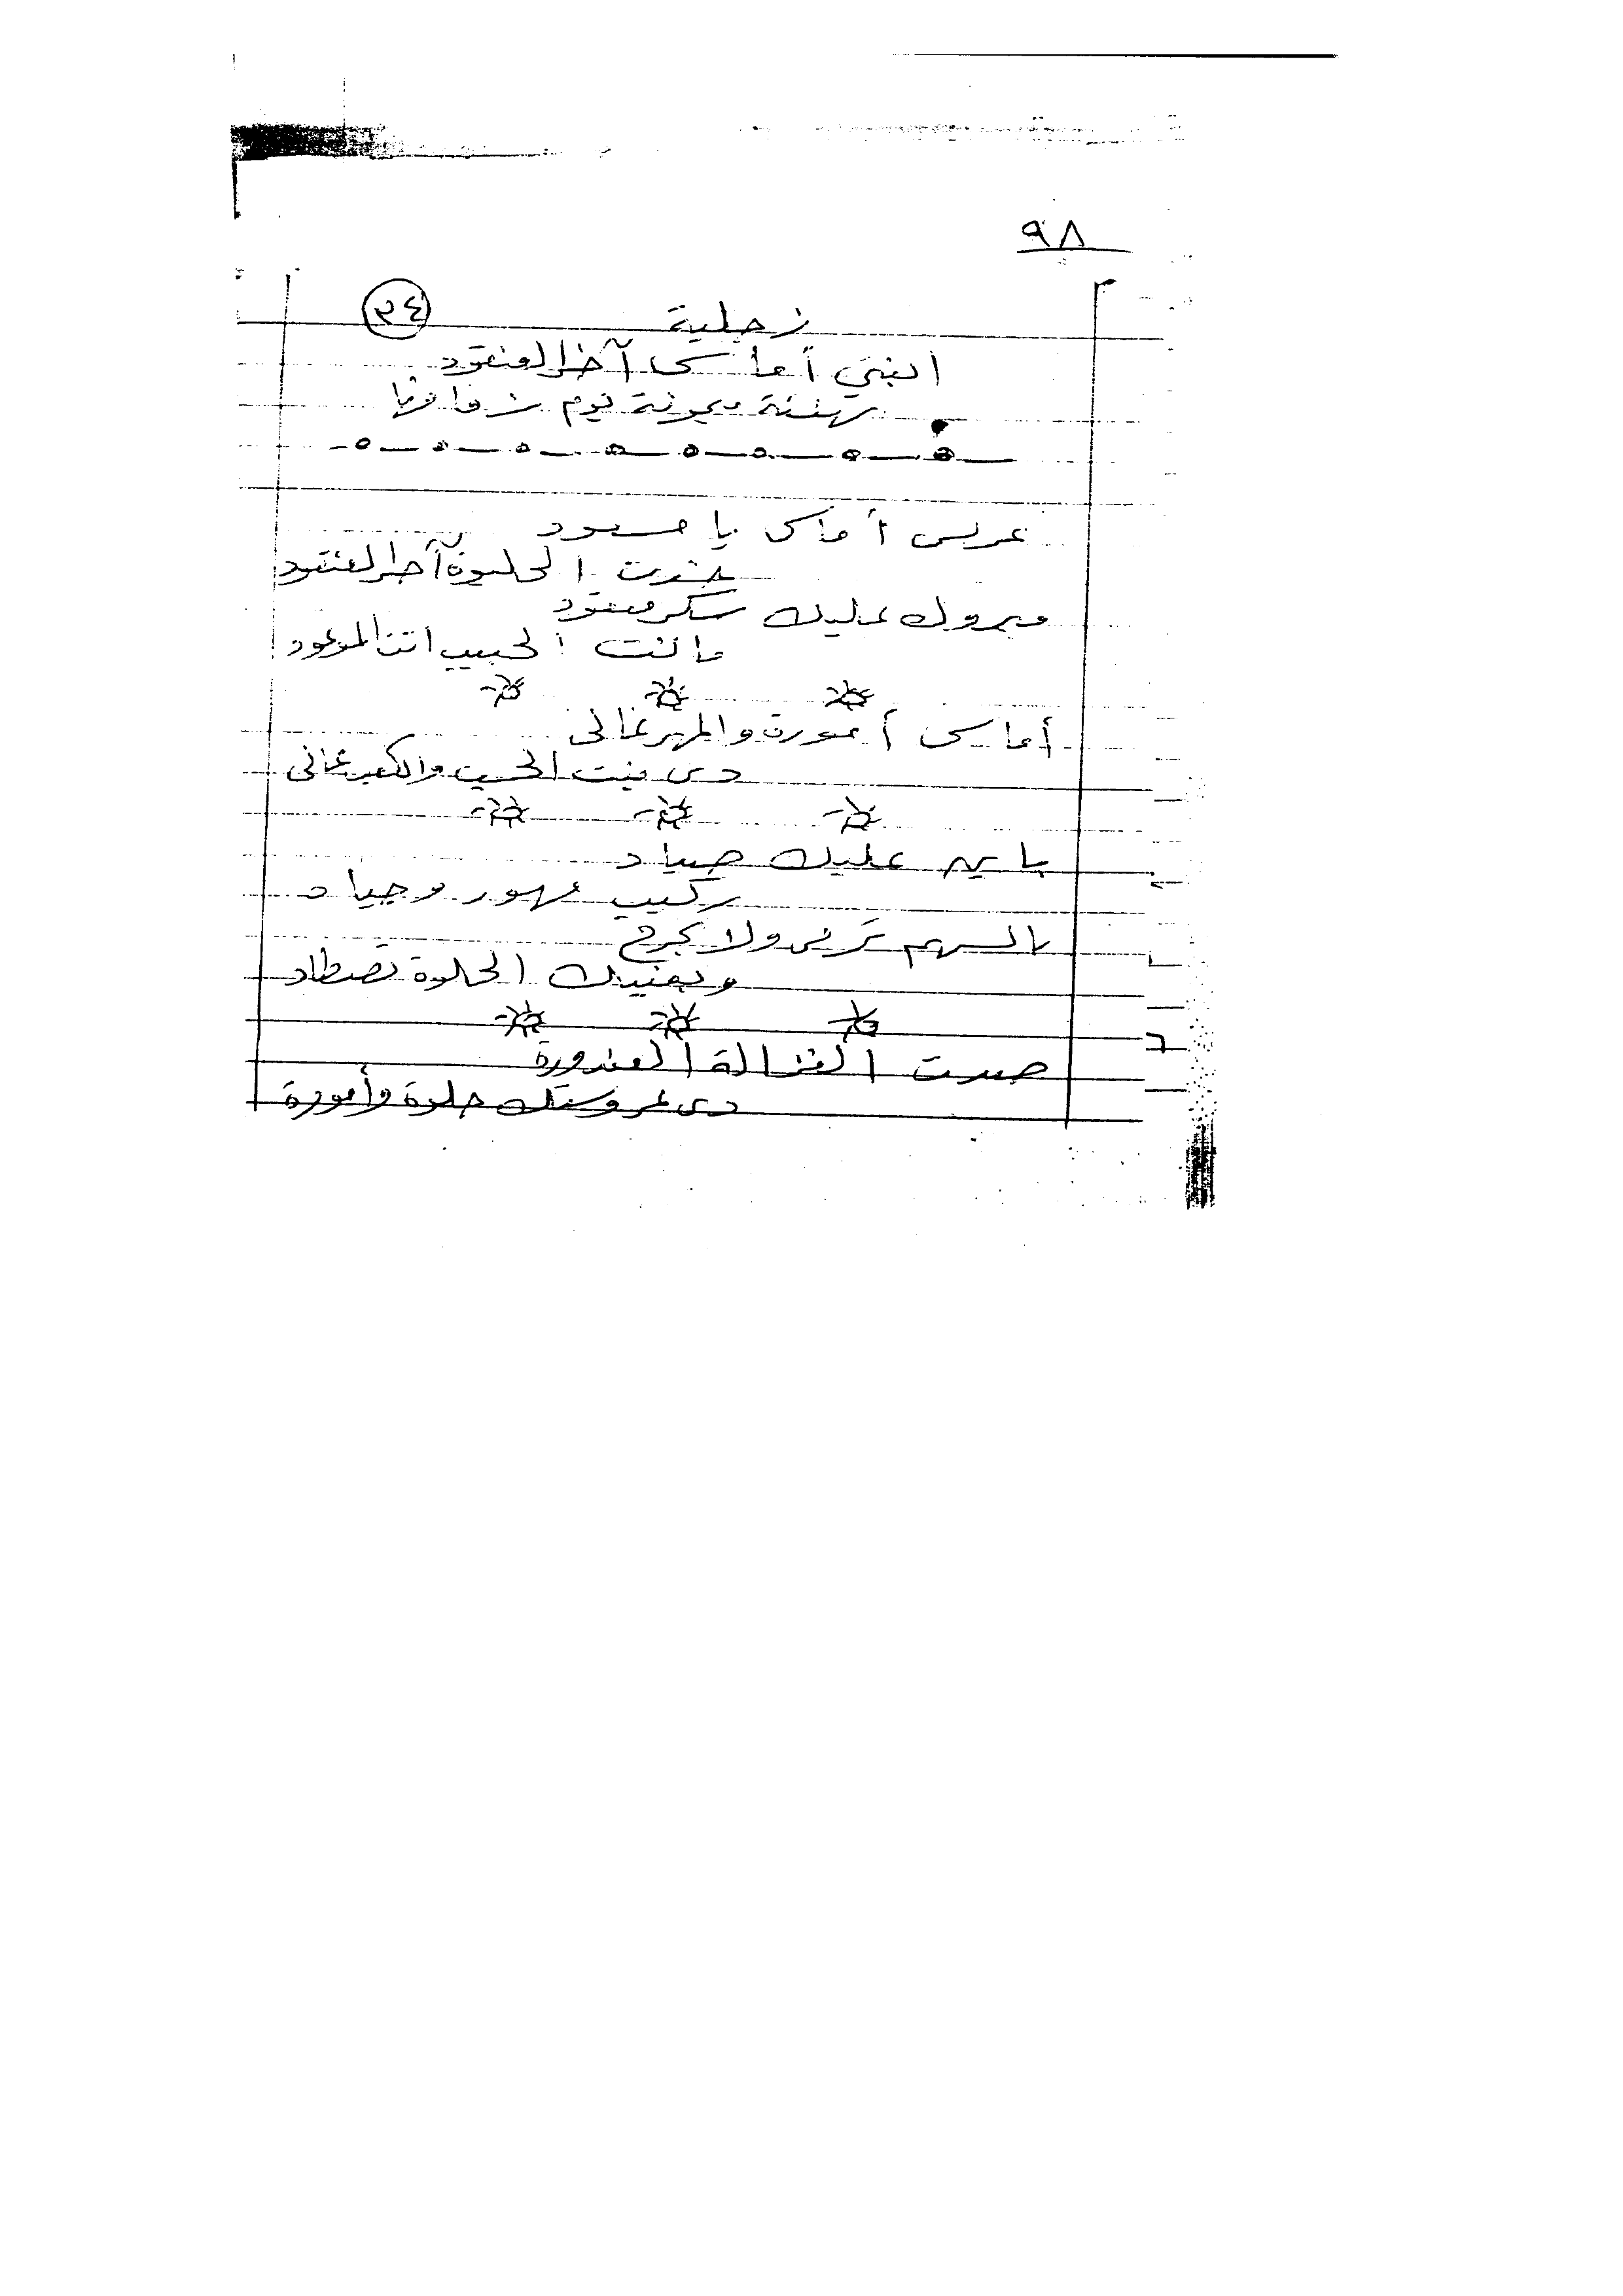 ٩٨
زجلية
٣٤
ابنتي أماني آخر العنقود
تهنئة ميمونة يوم زفافها
عريس أماني يا مسعود
خدت الحلوة آخر العنقود
مبروك عليك سكر معقود
ما انت الحبيب انت الموعود
أماني أمورة والمهر غالي
دي بنت الحسب والكعب عالي
يا بيه عليك صياد
ركيب مهور وجياد
بالسهم ترمي ولا بجرح
وبعنيك الحلوة تصطاد
صدت الغزالة الغندورة
دي عروستك حلوة وأمورة